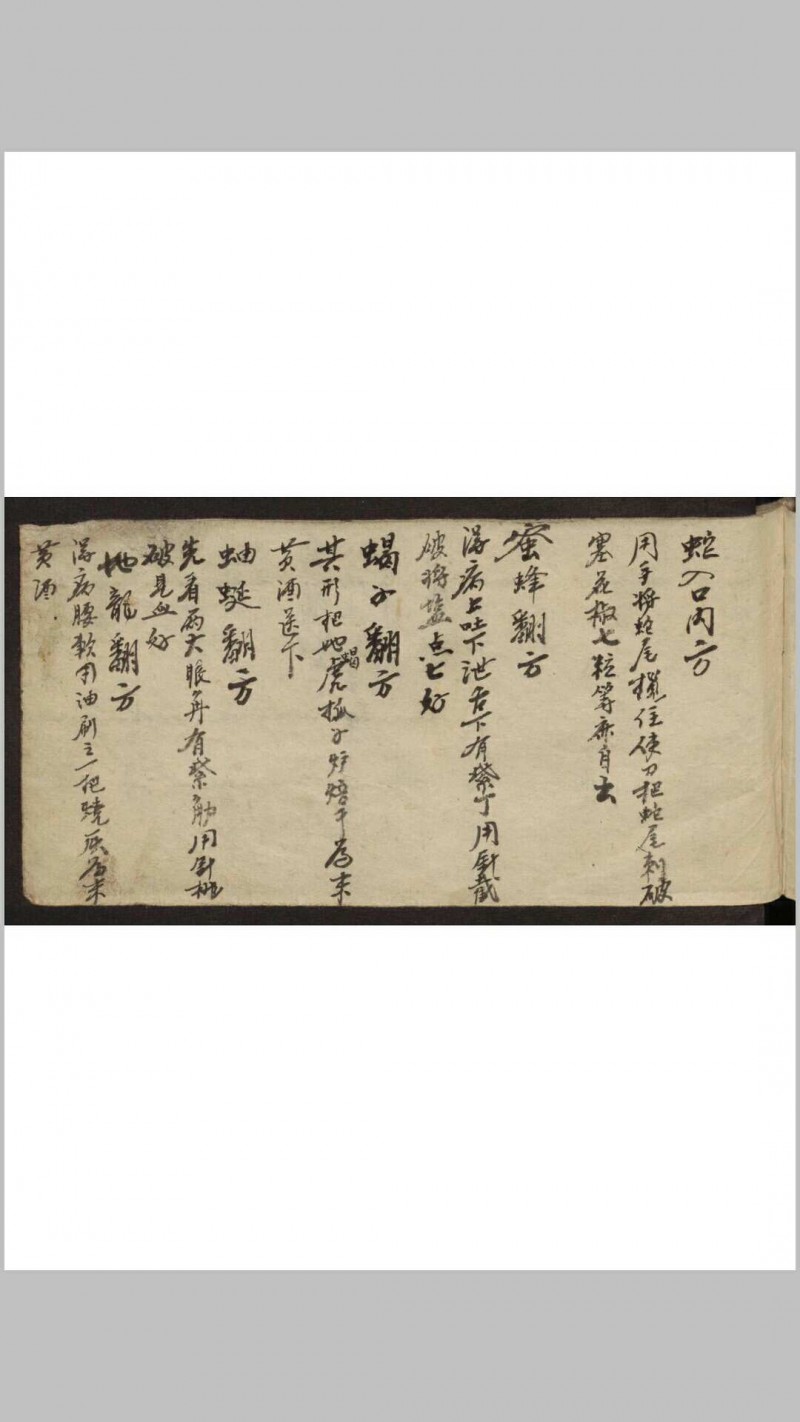 蛇入口内方
用手将蛇尾攥住使刀把蛇尾刺破
塞花椒七粒等亦自出
蜜蜂翻方
得病上吐下泄舌下有紫丁用針
破将盐点上好
蝎子翻方
其形把蝎虎子炉焙干为末
黄酒送下
蚰蜒翻方
先看两大眼角有紫筋用針挑
破見血好
地龍翻方
得病腰軟用油刷之一把燒灰为末
黄酒